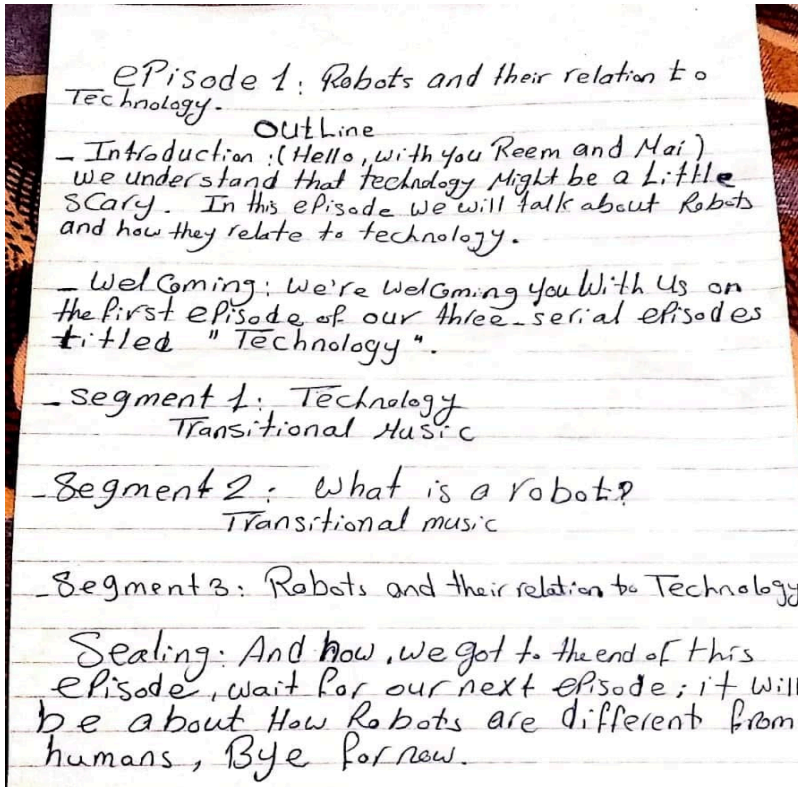 ePisode 1: Robots and their relation to
Technology.
OutLine
- Introduction :(Hello, with you Reem and Mai)
we understand that technology Might be a Little
scary. In this ePisode we will talk about Robots
and how they relate to technology.
- WelComing: We're WelComing you With Us on
the first ePisode of our three-serial ePisodes
titled "Technology".
- segment 1: Technology
Transitional Music
- Segment 2: What is a robot?
Transitional music
- Segment 3: Robots and their relation to Technology
Sealing: And now, we got to the end of this
ePisode, wait for our next ePisode; it will
be about How Robots are different from
humans, Bye for now.